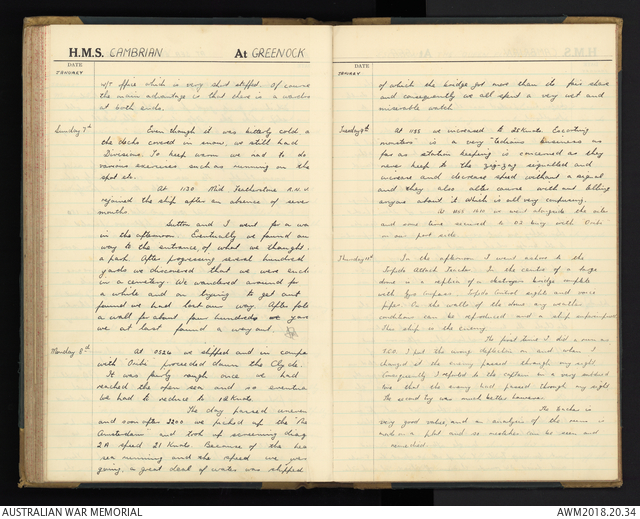 H.M.S. CAMBRIAN At GREENOCK
DATE
JANUARY
W/T office which is very short staffed. Of course
the main advantage is that there is a warden
at both ends.
Sunday 7th Even though it was bitterly cold a
the decks covered in snow, we still had
Divisions. To keep warm we had to do
various exercises such as running on the
spot etc.
At 1130 Mid Featherstone R.N.V
rejoined the ship after an absence of seve
months.
Sutton and I went for a wa
in the afternoon. Eventually we found our
way to the entrance, of what we thought,
a park. After progressing several hundred
yards we discovered that we were such
in a cemetery. We wandered around for
a while and on trying to get out
found we had lost our way. After foll
a wall for about four hundreds yard
we at last found a way out.
Monday 8th At 0920 we slipped and in compa
with proceeded down the Clyde.
It was fairly rough once we had
reached the open sea and so eventua
we had to reduce to 18 Knots.
The day passed uneven
and soon after 2200 we picked up the "Ne
Amsterdam" and took up screening diag
2A speed 21 Knots. Because of the hea
sea running and the speed we was
going, a great deal of water was shipped
DATE
JANUARY
of which the bridge got more than its fair share
and consequently we all spent a very wet and
miserable watch.
Tuesday 9th At 1155 we increased to 25 Knots. Escorting
monsters is a very tedious business as
far as station keeping is concerned as they
never keep to the zig-zag signalled and
increase and decrease speed without a signal
and they also alter course without telling
anyone about it which is all very confusing.
At we went alongside the oiler
and some time seemed to be busy with
on our port side.
Thursday 11th In the afternoon I went ashore to the
Torpedo Attack Teacher. In the centre of a large
dome is a replica of a destroyers bridge complete
with Gyro Compass, Torpedo Control sight and voice
pipes. On the walls of the dome any weather
conditions can be reproduced and a ship superimposed
This ship is the enemy.
The first time I did a
I put the wrong deflection on and when I
changed it the enemy passed through my sight
Consequently I reported to the captain in a very subdued
tone that the enemy had passed through my sight
The second try was much better however.
The teacher is
very good value, and an analysis of the runs is
worked on a plot and so mistakes can be seen and
remedied.
AUSTRALIAN WAR MEMORIAL
AWM2018.20.34